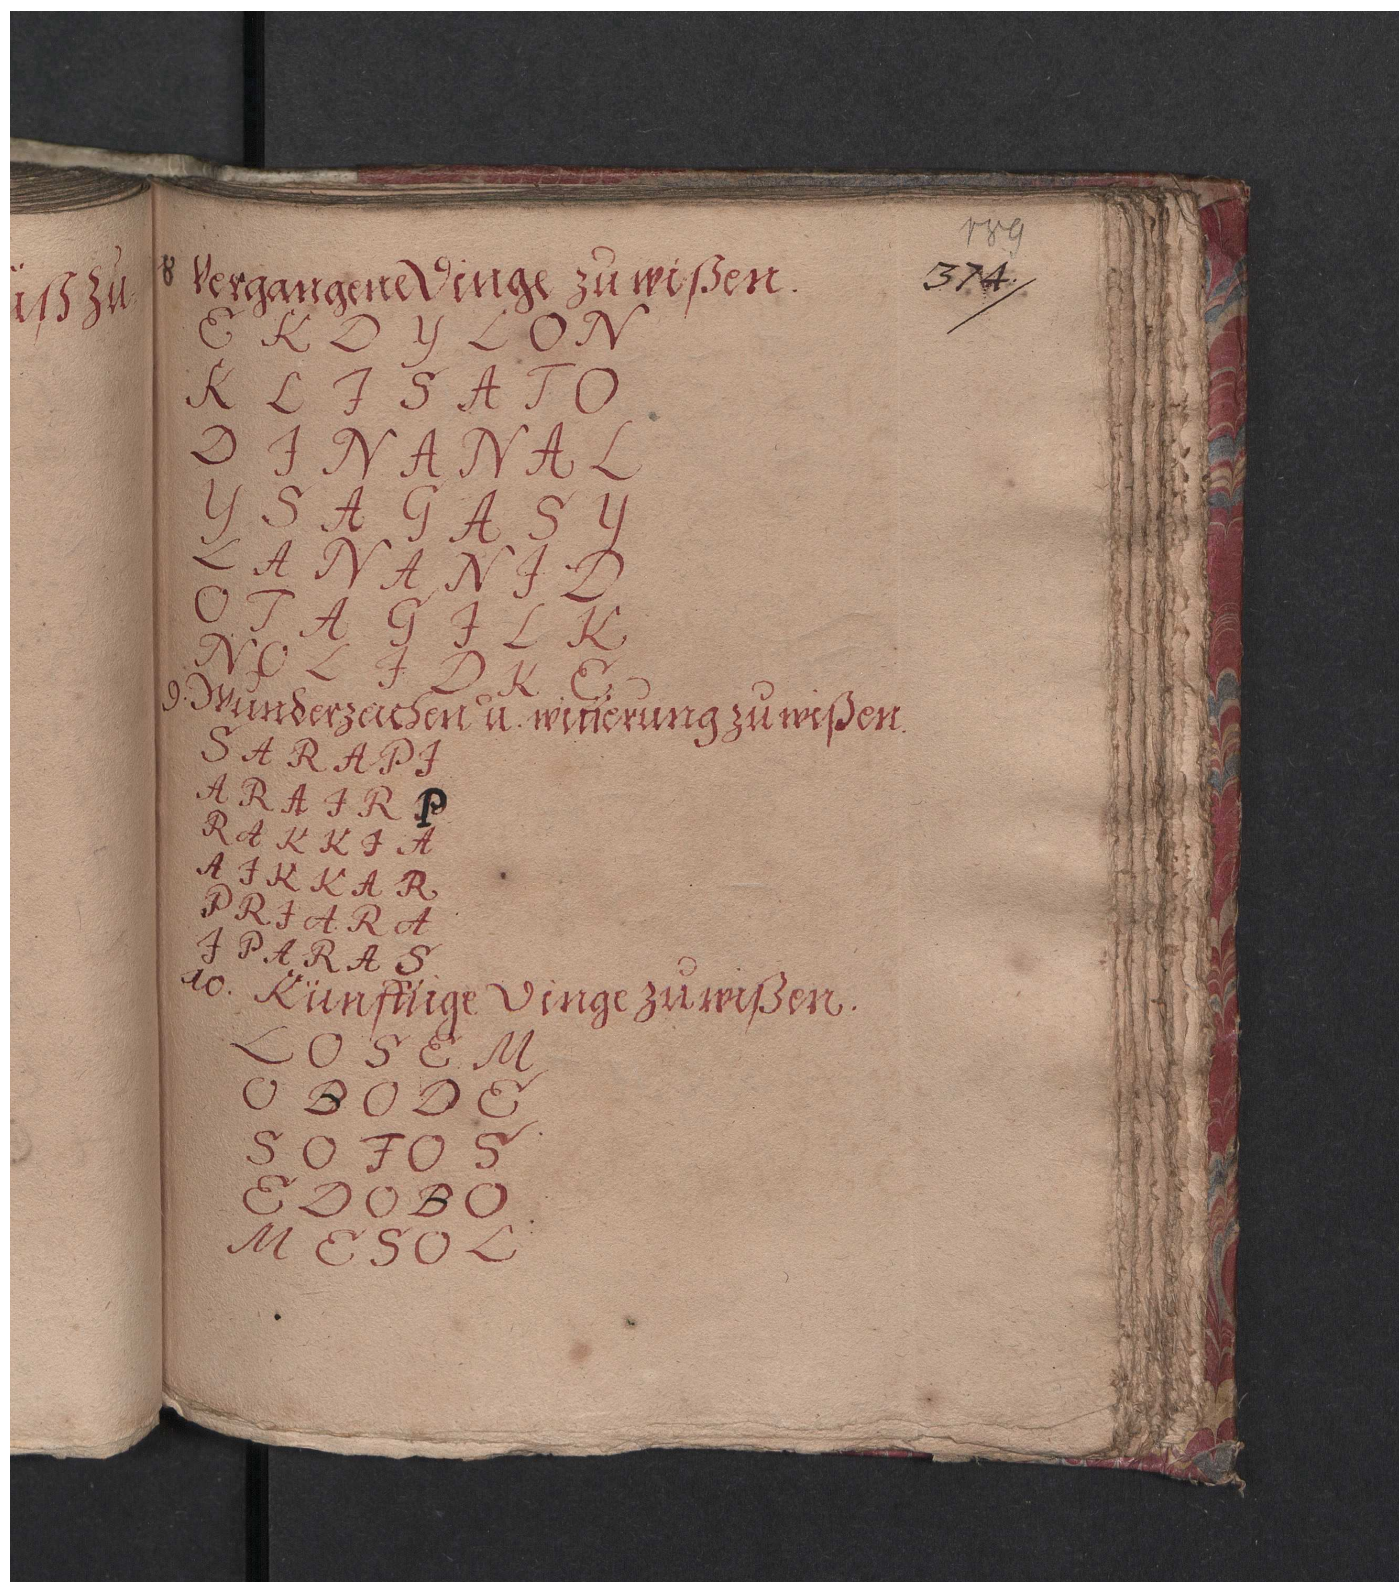 189
374
iß zu
8 Vergangene Dinge zu wißen.
E K D Y L O N
K L I S A T O
D I N A N A L
Y S A G A S Y
L A N A N I D
O T A G I L K
N O L I D K E
9. Wunderzeichen u. witterung zu wißen.
S A R A P I
A R A I R P
R A K K I A
A I K K A R
P R I A R A
I P A R A S
10. Künfftige Dinge zu wißen.
L O S E M
O B O D E
S O F O S
E D O B O
M E S O L